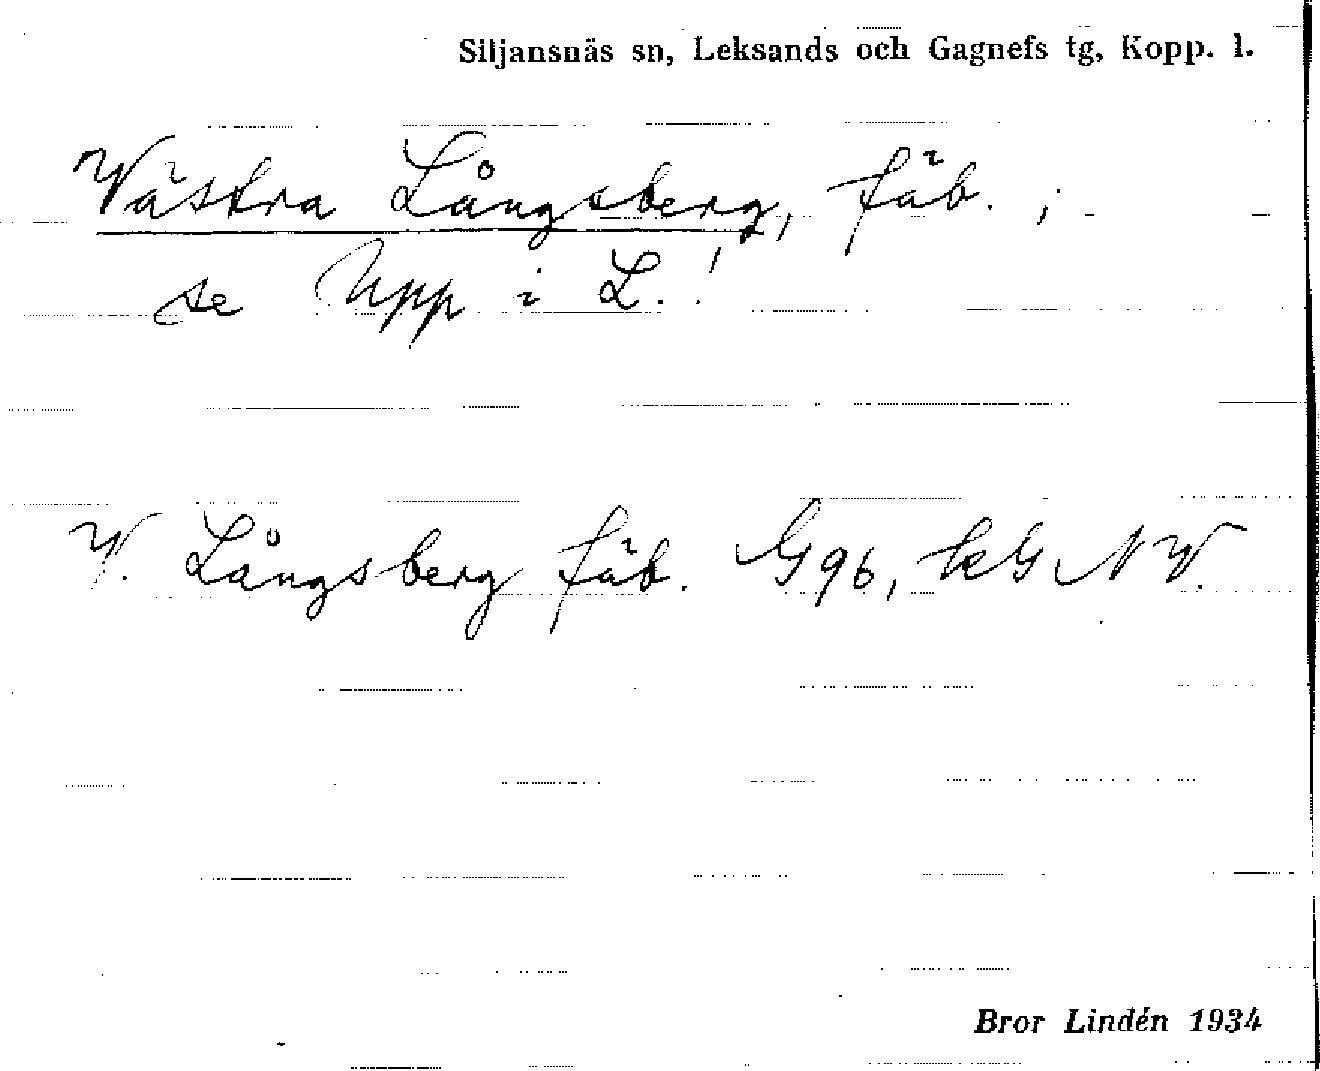 Siljansnäs sn, Leksands och Gagnefs tg, Kopp. l.
Västra Långsberg, fäb. ;
se Upp i L.!
V. Långsberg fäb. G96, kG NV.
Bror Lindén 1934